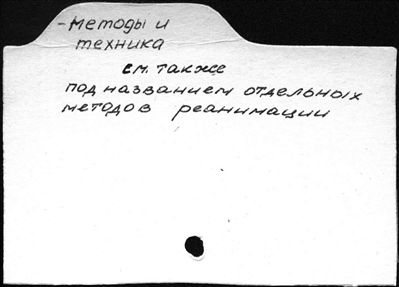 -методы и
техника
см. также
под названием отдельных
методов реанимации